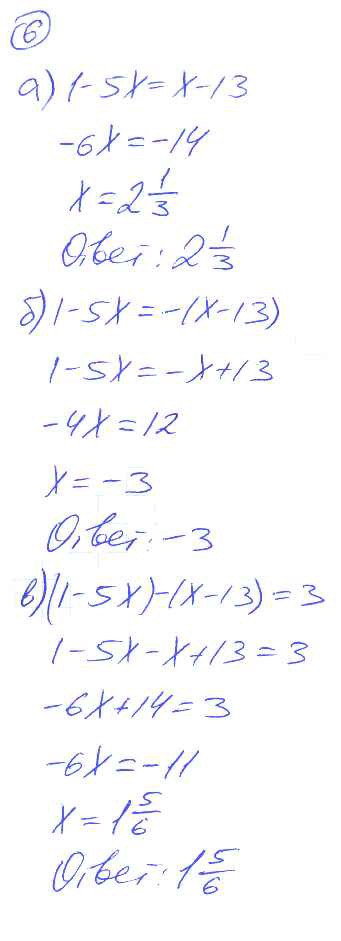 6
а) 1-5x=x-13
-6x=-14
x=2 1/3
Ответ: 2 1/3
б) 1-5x=-(x-13)
1-5x=-x+13
-4x=12
x=-3
Ответ: -3
в) (1-5x)-(x-13)=3
1-5x-x+13=3
-6x+14=3
-6x=-11
x=1 5/6
Ответ: 1 5/6